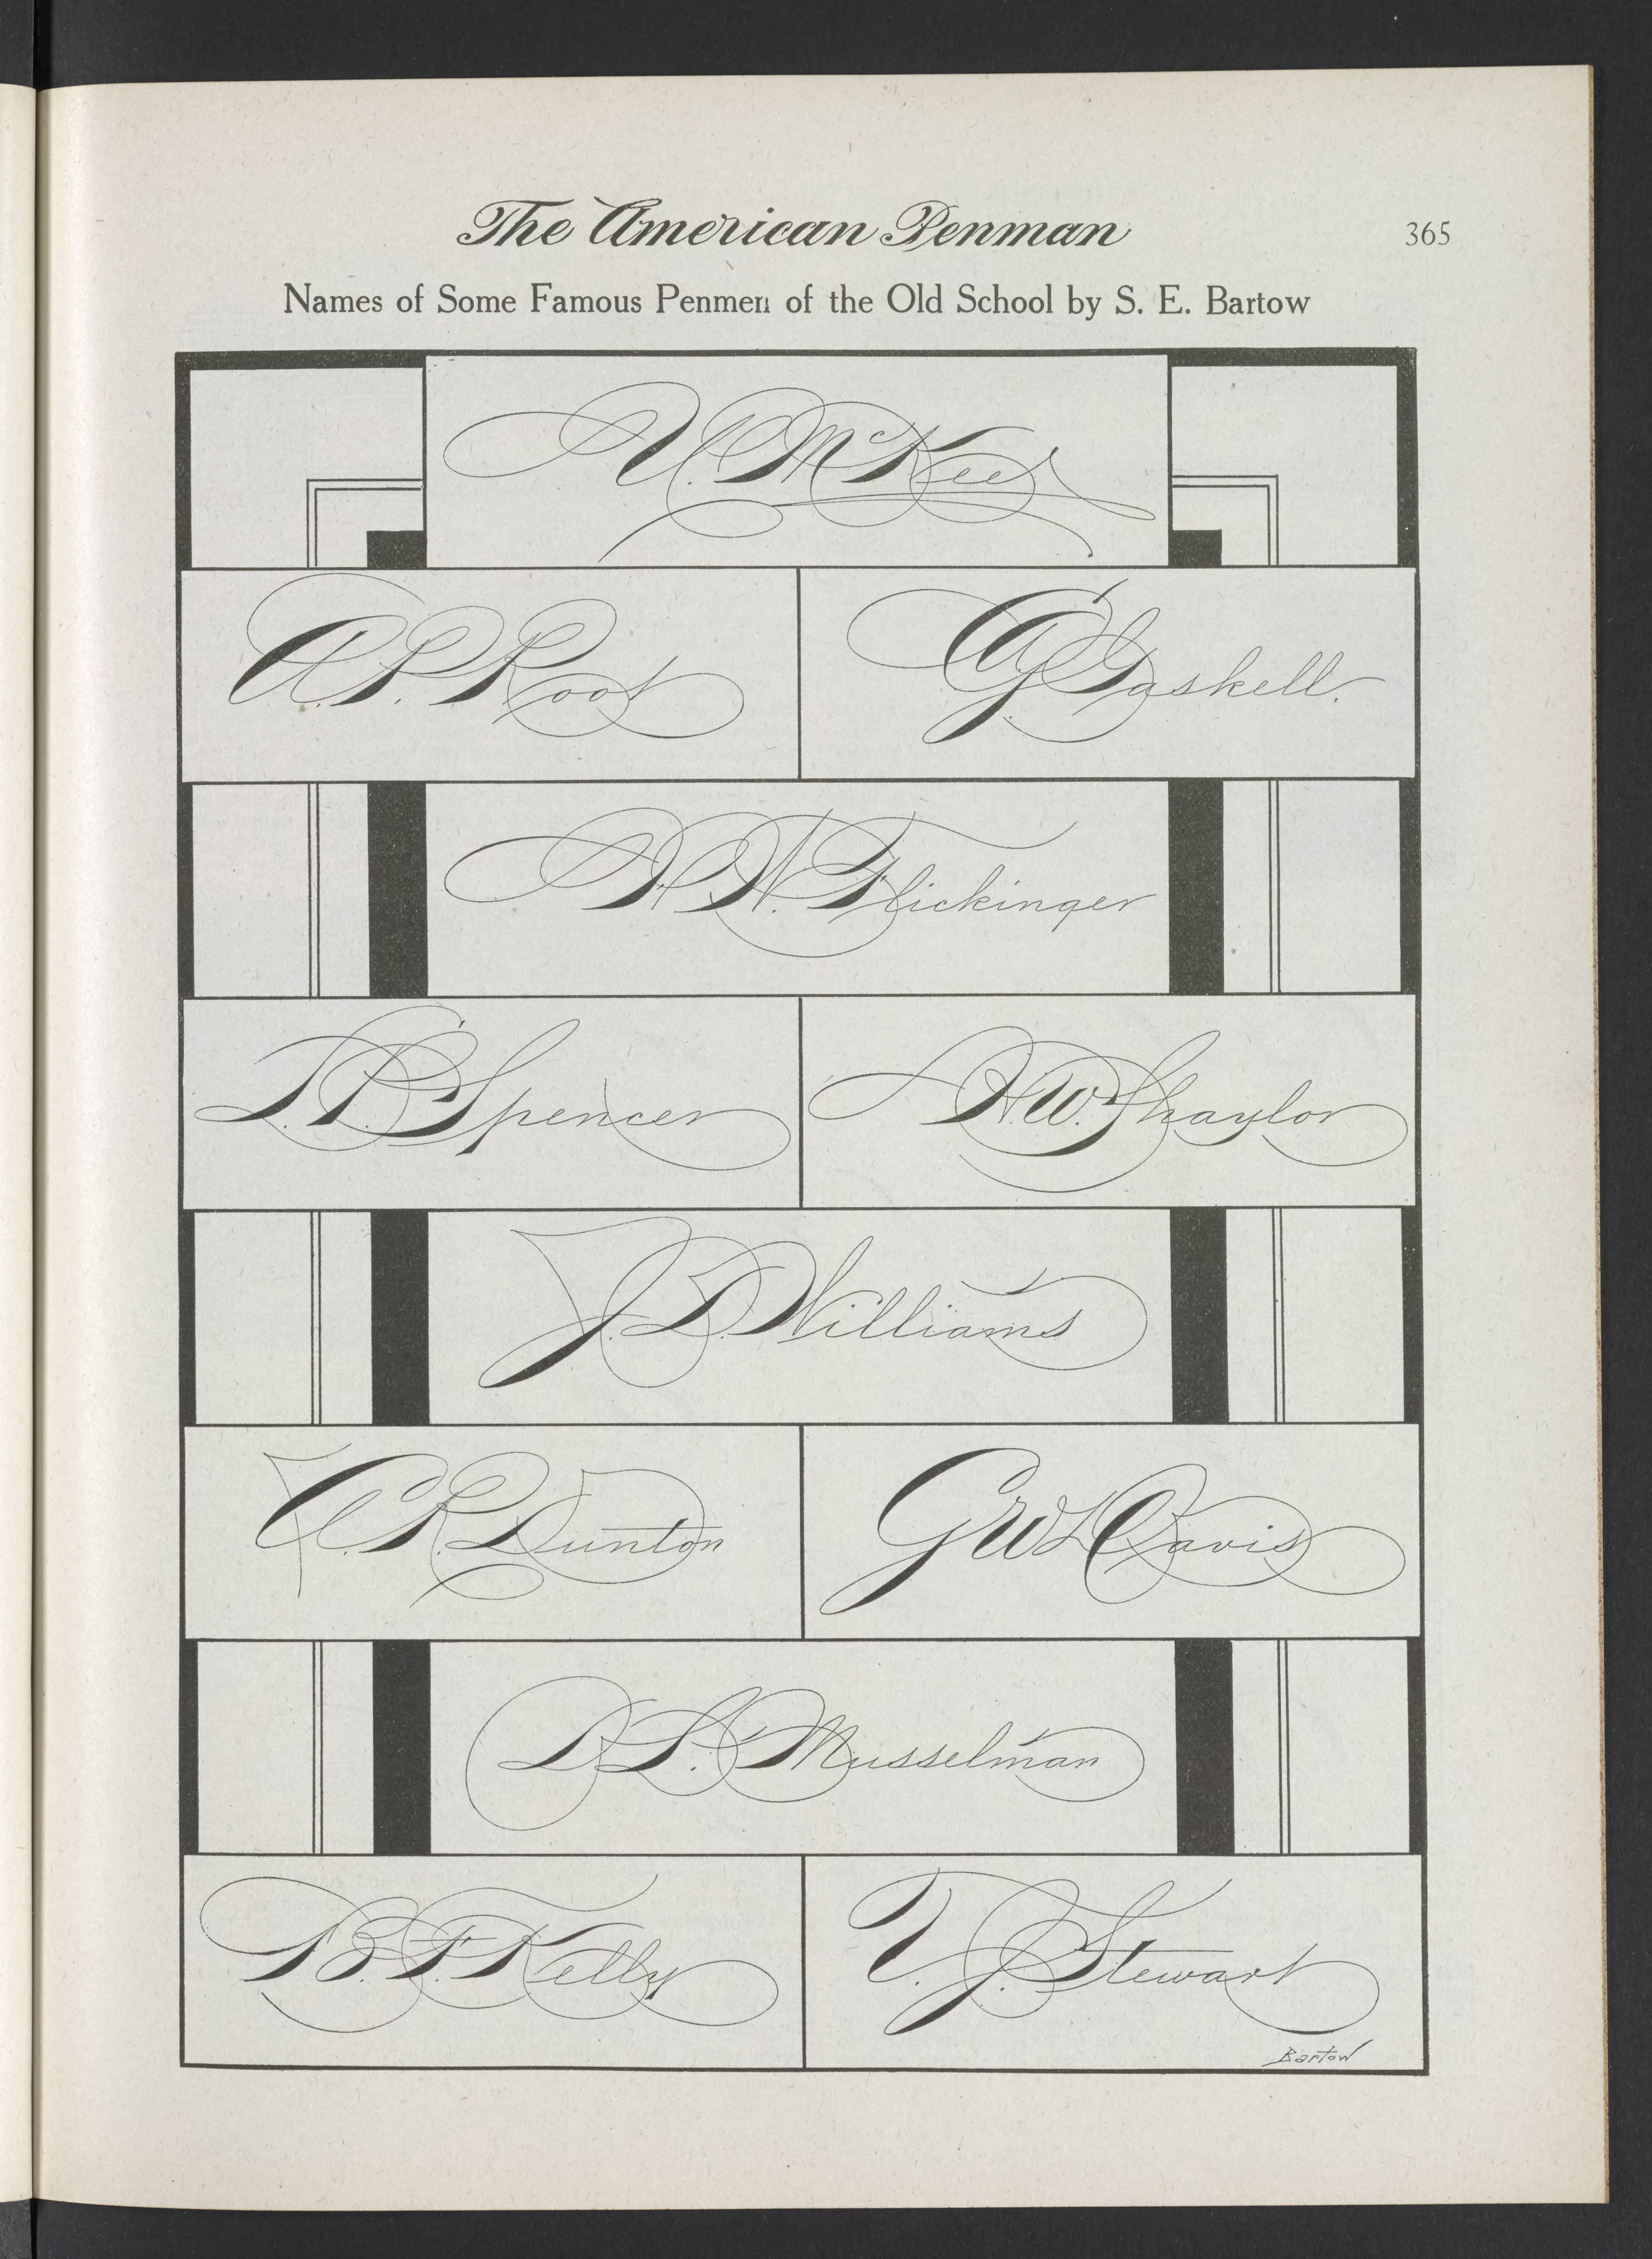 The American Penman
365
Names of Some Famous Penmen of the Old School by S. E. Bartow
U. McKee
A. P. Root
G. A. Gaskell.
H. W. Flickinger
L. P. Spencer
H. W. Shaylor
J. D. Williams
A. R. Dunton
Davis
D. L. Musselman
B. F. Kelly
T. J. Stewart
Bartow